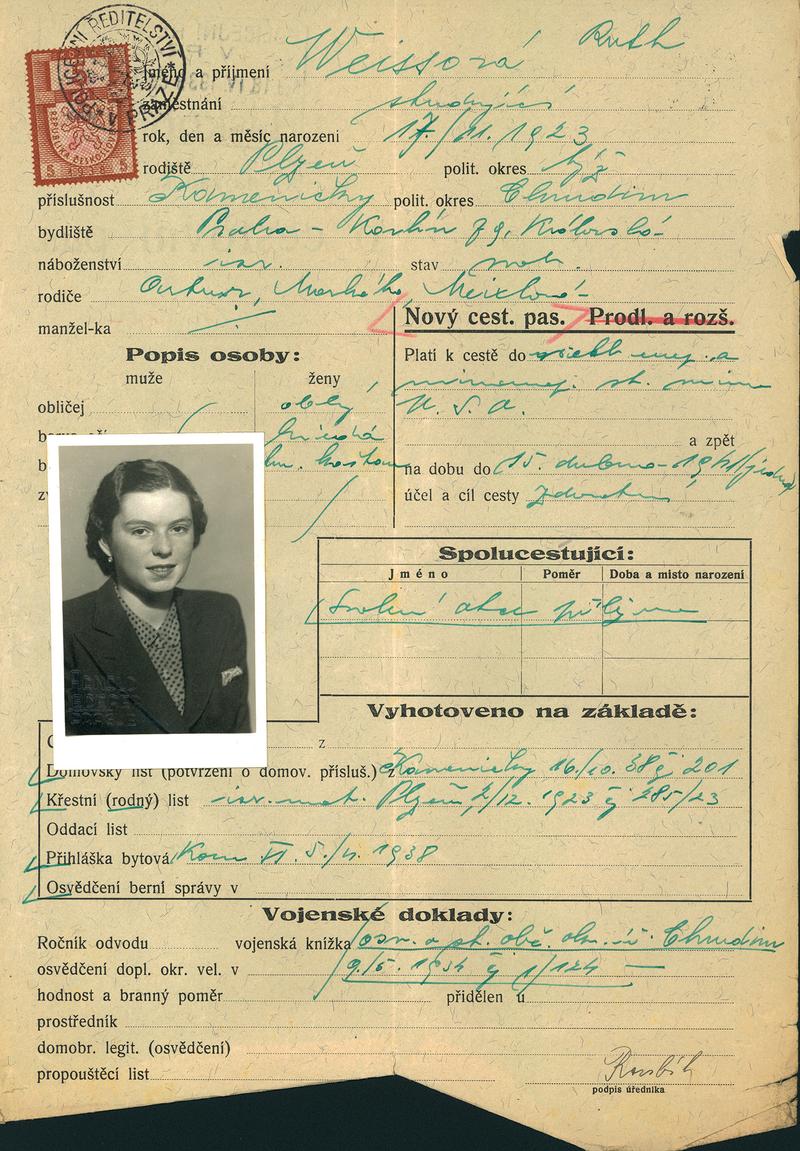 POLICEJNÍ ŘEDITELSTVÍ V PRAZE
REPUBLIKA ČESKOSLOV
5 1938 5
Jméno a příjmení Weissová Ruth
zaměstnání studující
rok, den a měsíc narození 17/11. 1923
rodiště Plzeň polit. okres týž
příslušnost Kameničky polit. okres Chrudim
bydliště Praha - Karlín 79, Královská
náboženství isr. stav svob.
rodiče Artur, Markéta, Meixlová
manžel-ka
Nový cest. pas. Prodl. a rozš.
Popis osoby:
muže ženy
obličej oblý
Platí k cestě do všech evrop. a
mimoevrop. st. mimo
U. S. A.
a zpět
na dobu do 15. dubna 1941
účel a cíl cesty
Spolucestující:
Jméno Poměr Doba a místo narození
Svolení otce
Vyhotoveno na základě:
z
Domovský list (potvrzení o domov. přísluš.) Kameničky 16./10. 38 čj 201
Křestní (rodný) list isr. mat. Plzeň, 2/12. 1923 čj 285/23
Oddací list
Přihláška bytová Kom VI. 5./11. 1938
Osvědčení berní správy v
Vojenské doklady:
Ročník odvodu vojenská knížka osv. o st. obč. okr. úř. Chrudim
osvědčení dopl. okr. vel. v 9./5. 1934 čj 1/124
hodnost a branný poměr přidělen u
prostředník
domobr. legit. (osvědčení)
propouštěcí list
podpis úředníka